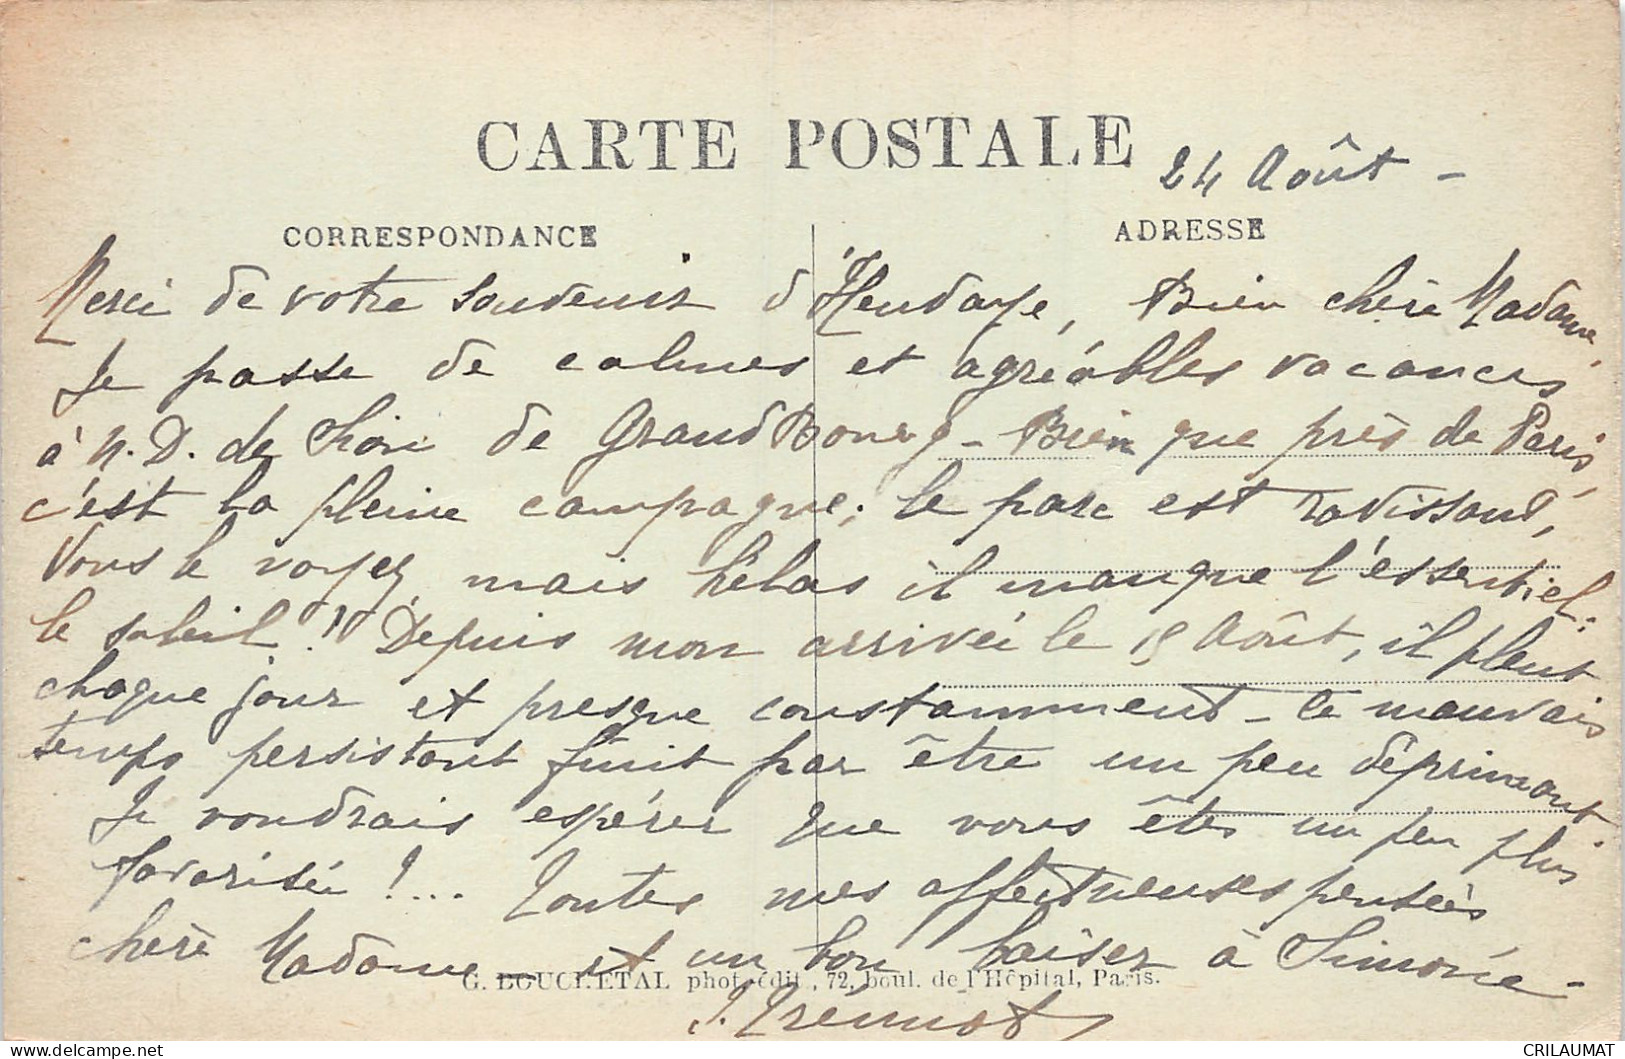 CARTE POSTALE
24 Août -
CORRESPONDANCE
ADRESSE
Merci de votre souvenir d'Hendaye, Bien chère Madame,
Je passe de calmes et agréables vacances
à N. D. de Sion de Grand Bourg - Bien que près de Paris,
c'est la pleine campagne; le parc est ravissant,
Vous le voyez, mais hélas il manque l'essentiel:
le soleil! Depuis mon arrivée le 15 Août, il pleut
chaque jour et presque constamment - Ce mauvais
temps persistant finit par être un peu déprimant.
Je voudrais espérer que vous êtes un peu plus
favorisée!... Toutes mes affectueuses pensées
chère Madame et un bon baiser à Simone -
G. BOUCHETAL phot. édit, 72, boul. de l'Hôpital, Paris.
CRILAUMAT